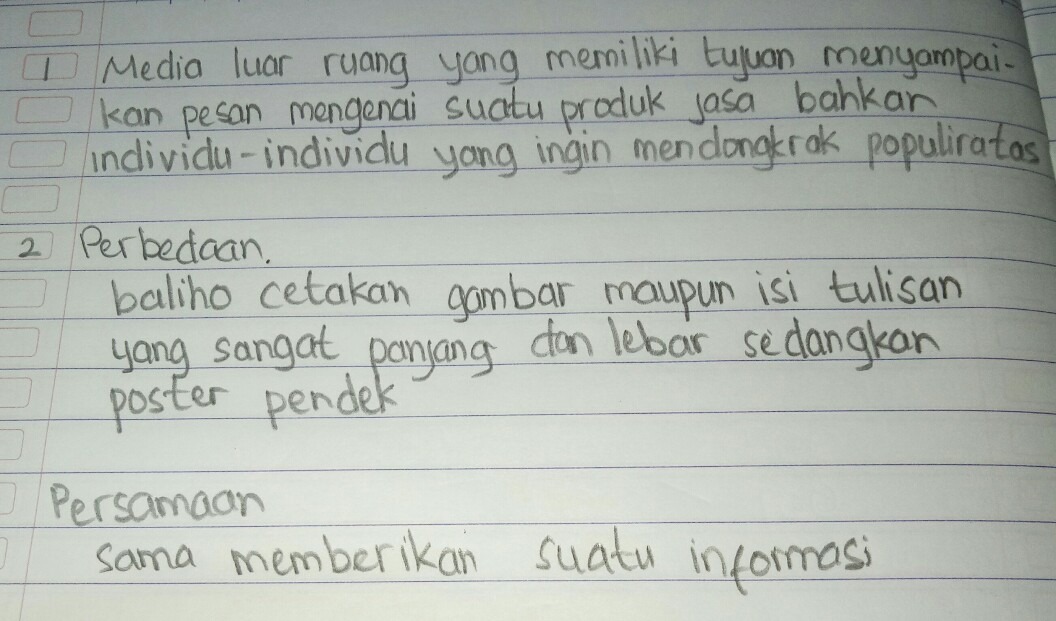 1 Media luar ruang yang memiliki tujuan menyampai-
kan pesan mengenai suatu produk jasa bahkan
individu-individu yang ingin mendongkrak populiratas
2 Perbedaan.
baliho cetakan gambar maupun isi tulisan
yang sangat panjang dan lebar sedangkan
poster pendek
Persamaan
sama memberikan suatu informasi